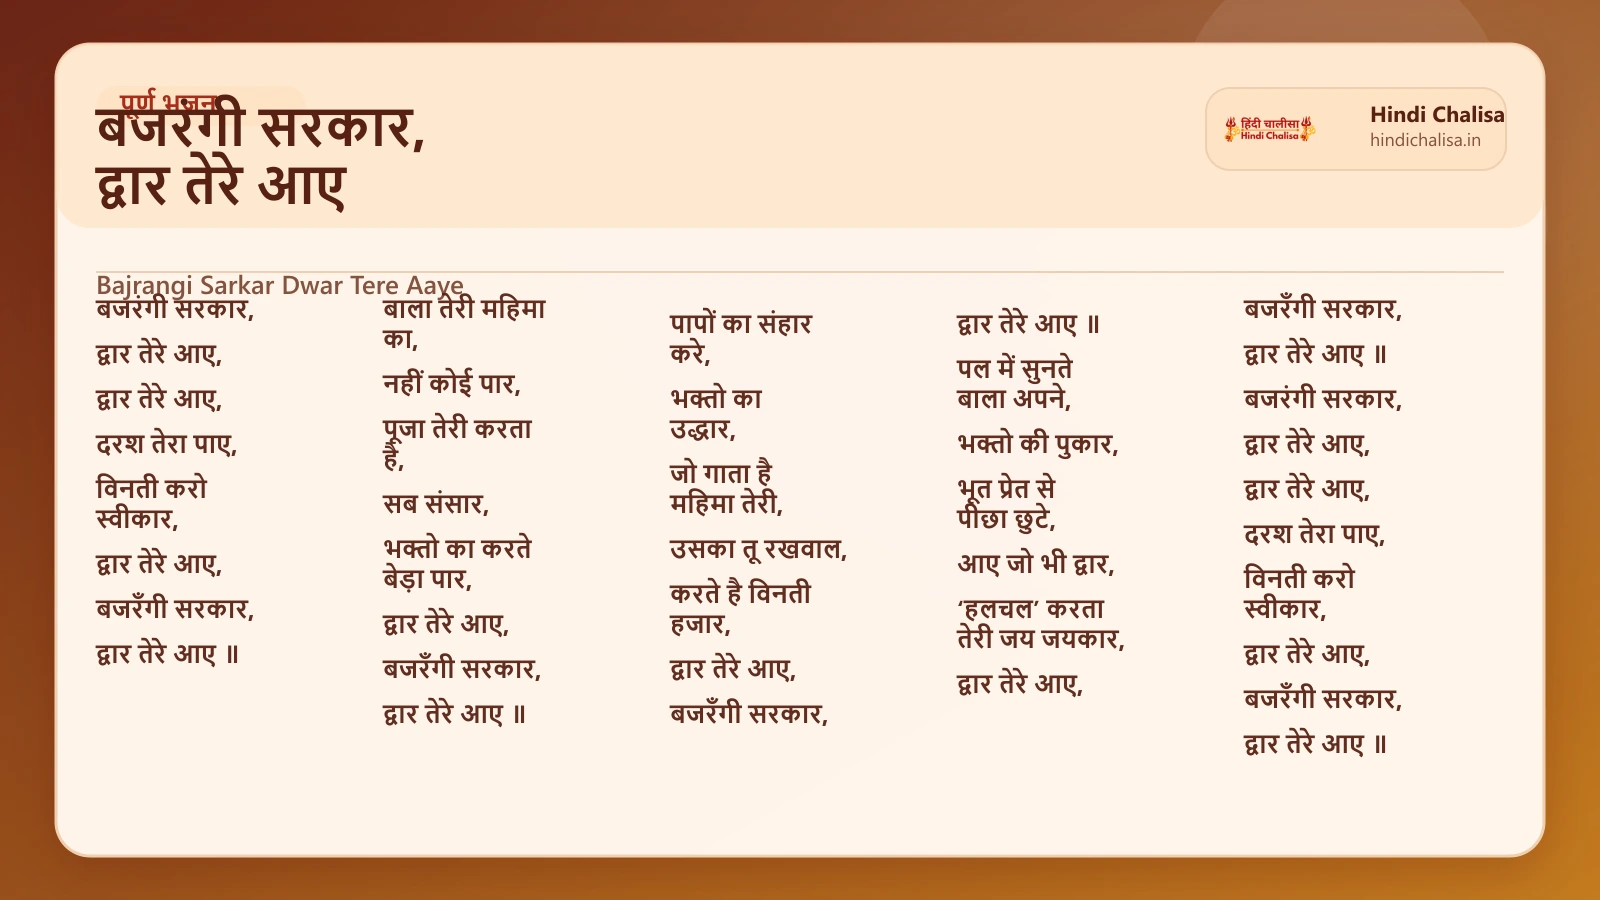 पूर्ण भजन
बजरंगी सरकार,
द्वार तेरे आए
हिंदी चालीसा
Hindi Chalisa
Hindi Chalisa
hindichalisa.in
Bajrangi Sarkar Dwar Tere Aaye
बजरंगी सरकार,
द्वार तेरे आए,
द्वार तेरे आए,
दरश तेरा पाए,
विनती करो
स्वीकार,
द्वार तेरे आए,
बजरँगी सरकार,
द्वार तेरे आए ॥
बाला तेरी महिमा
का,
नहीं कोई पार,
पूजा तेरी करता
है,
सब संसार,
भक्तो का करते
बेड़ा पार,
द्वार तेरे आए,
बजरँगी सरकार,
द्वार तेरे आए ॥
पापों का संहार
करे,
भक्तो का
उद्धार,
जो गाता है
महिमा तेरी,
उसका तू रखवाल,
करते है विनती
हजार,
द्वार तेरे आए,
बजरँगी सरकार,
द्वार तेरे आए ॥
पल में सुनते
बाला अपने,
भक्तो की पुकार,
भूत प्रेत से
पीछा छुटे,
आए जो भी द्वार,
‘हलचल’ करता
तेरी जय जयकार,
द्वार तेरे आए,
बजरँगी सरकार,
द्वार तेरे आए ॥
बजरंगी सरकार,
द्वार तेरे आए,
द्वार तेरे आए,
दरश तेरा पाए,
विनती करो
स्वीकार,
द्वार तेरे आए,
बजरँगी सरकार,
द्वार तेरे आए ॥